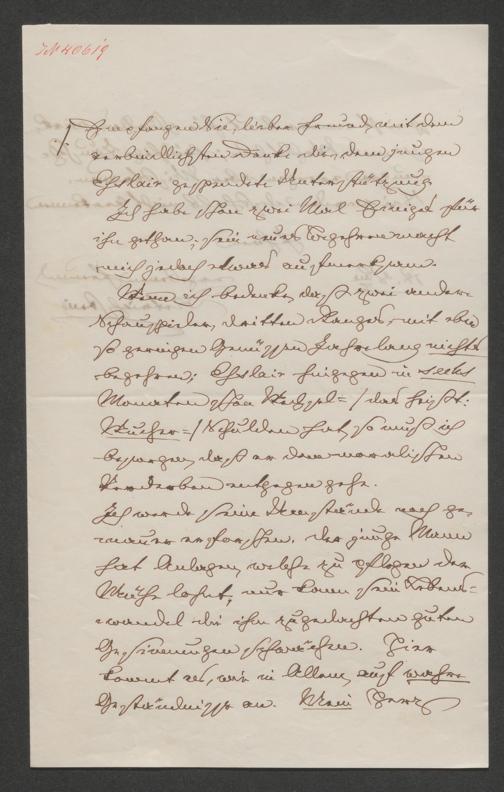 IN 40619
Empfangen Sie, lieber Freund, mit dem
verbindlichsten Danke die, dem jungen
Eßlair gespendete Unterstützung.
Ich habe schon zwei Mal Einiges für
ihn gethan; sein neues Begehren macht
mich jedoch etwas aufmerksam.
Wenn ich bedenke, daß zwei andere
Schauspieler, dritten Ranges, mit eben
so geringen Genüssen Jahrelang nichts
begehren; Eßlair hingegen in sechs
Monaten schon Wechsel= / das heißt:
Wucher= / Schulden hat, so muß ich
besorgen, daß er dem moralischen
Verderben entgegen gehe.
Ich werde seine Umstände noch ge=
nauer erforschen. Der junge Mann
hat Anlagen, welche zu pflegen der
Mühe lohnt, nur kann sein Lebens=
wandel die ihm zugedachten guten
Gesinnungen schwächen. Hier
kommt es, wie in Allem, auf wahre
Geständnisse an. Mein Herz